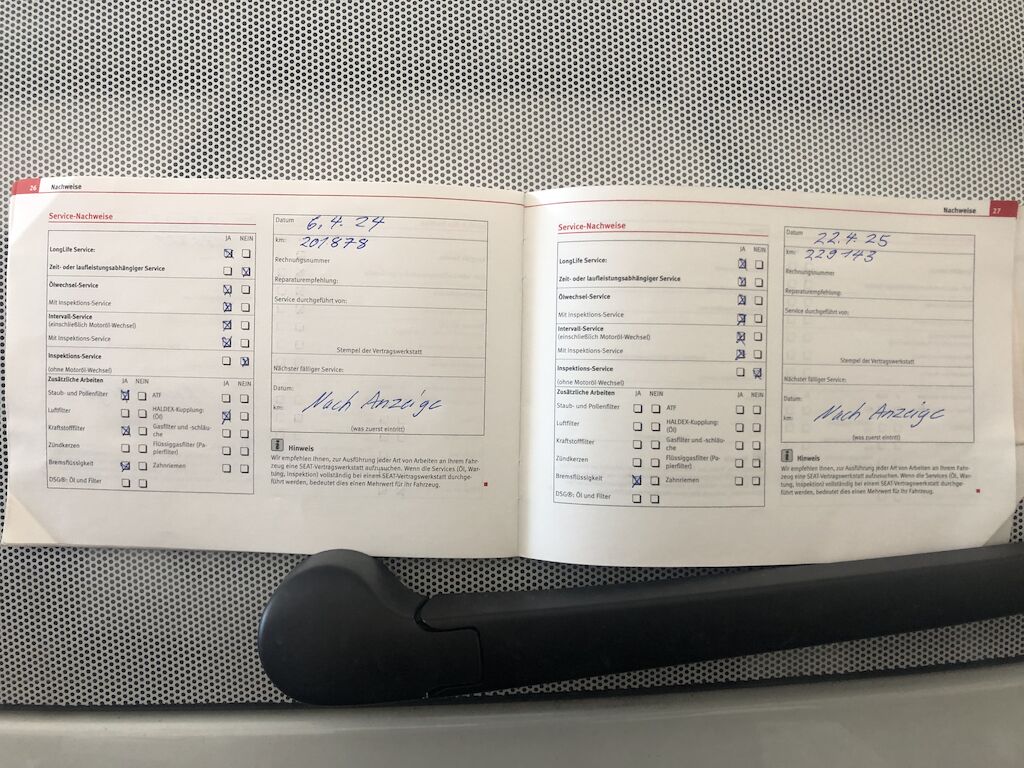 26 Nachweise
Service-Nachweise
JA NEIN
LongLife Service:
Zeit- oder laufleistungsabhängiger Service
Ölwechsel-Service
Mit Inspektions-Service
Intervall-Service
(einschließlich Motoröl-Wechsel)
Mit Inspektions-Service
Inspektions-Service
(ohne Motoröl-Wechsel)
Zusätzliche Arbeiten JA NEIN JA NEIN
Staub- und Pollenfilter ATF
Luftfilter HALDEX-Kupplung:
(Öl)
Kraftstofffilter Gasfilter und -schläu-
che
Zündkerzen Flüssiggasfilter (Pa-
pierfilter)
Bremsflüssigkeit Zahnriemen
DSG®: Öl und Filter
Datum 6.4.24
km: 201878
Rechnungsnummer
Reparaturempfehlung:
Service durchgeführt von:
Stempel der Vertragswerkstatt
Nächster fälliger Service:
Datum:
km: Nach Anzeige
(was zuerst eintritt)
i Hinweis
Wir empfehlen Ihnen, zur Ausführung jeder Art von Arbeiten an Ihrem Fahr-
zeug eine SEAT-Vertragswerkstatt aufzusuchen. Wenn die Services (Öl, War-
tung, Inspektion) vollständig bei einem SEAT-Vertragswerkstatt durchge-
führt werden, bedeutet dies einen Mehrwert für Ihr Fahrzeug.
Nachweise 27
Service-Nachweise
JA NEIN
LongLife Service:
Zeit- oder laufleistungsabhängiger Service
Ölwechsel-Service
Mit Inspektions-Service
Intervall-Service
(einschließlich Motoröl-Wechsel)
Mit Inspektions-Service
Inspektions-Service
(ohne Motoröl-Wechsel)
Zusätzliche Arbeiten JA NEIN JA NEIN
Staub- und Pollenfilter ATF
Luftfilter HALDEX-Kupplung:
(Öl)
Kraftstofffilter Gasfilter und -schläu-
che
Zündkerzen Flüssiggasfilter (Pa-
pierfilter)
Bremsflüssigkeit Zahnriemen
DSG®: Öl und Filter
Datum 22.4.25
km: 229143
Rechnungsnummer
Reparaturempfehlung:
Service durchgeführt von:
Stempel der Vertragswerkstatt
Nächster fälliger Service:
Datum:
km: Nach Anzeige
(was zuerst eintritt)
i Hinweis
Wir empfehlen Ihnen, zur Ausführung jeder Art von Arbeiten an Ihrem Fahr-
zeug eine SEAT-Vertragswerkstatt aufzusuchen. Wenn die Services (Öl, War-
tung, Inspektion) vollständig bei einem SEAT-Vertragswerkstatt durchge-
führt werden, bedeutet dies einen Mehrwert für Ihr Fahrzeug.